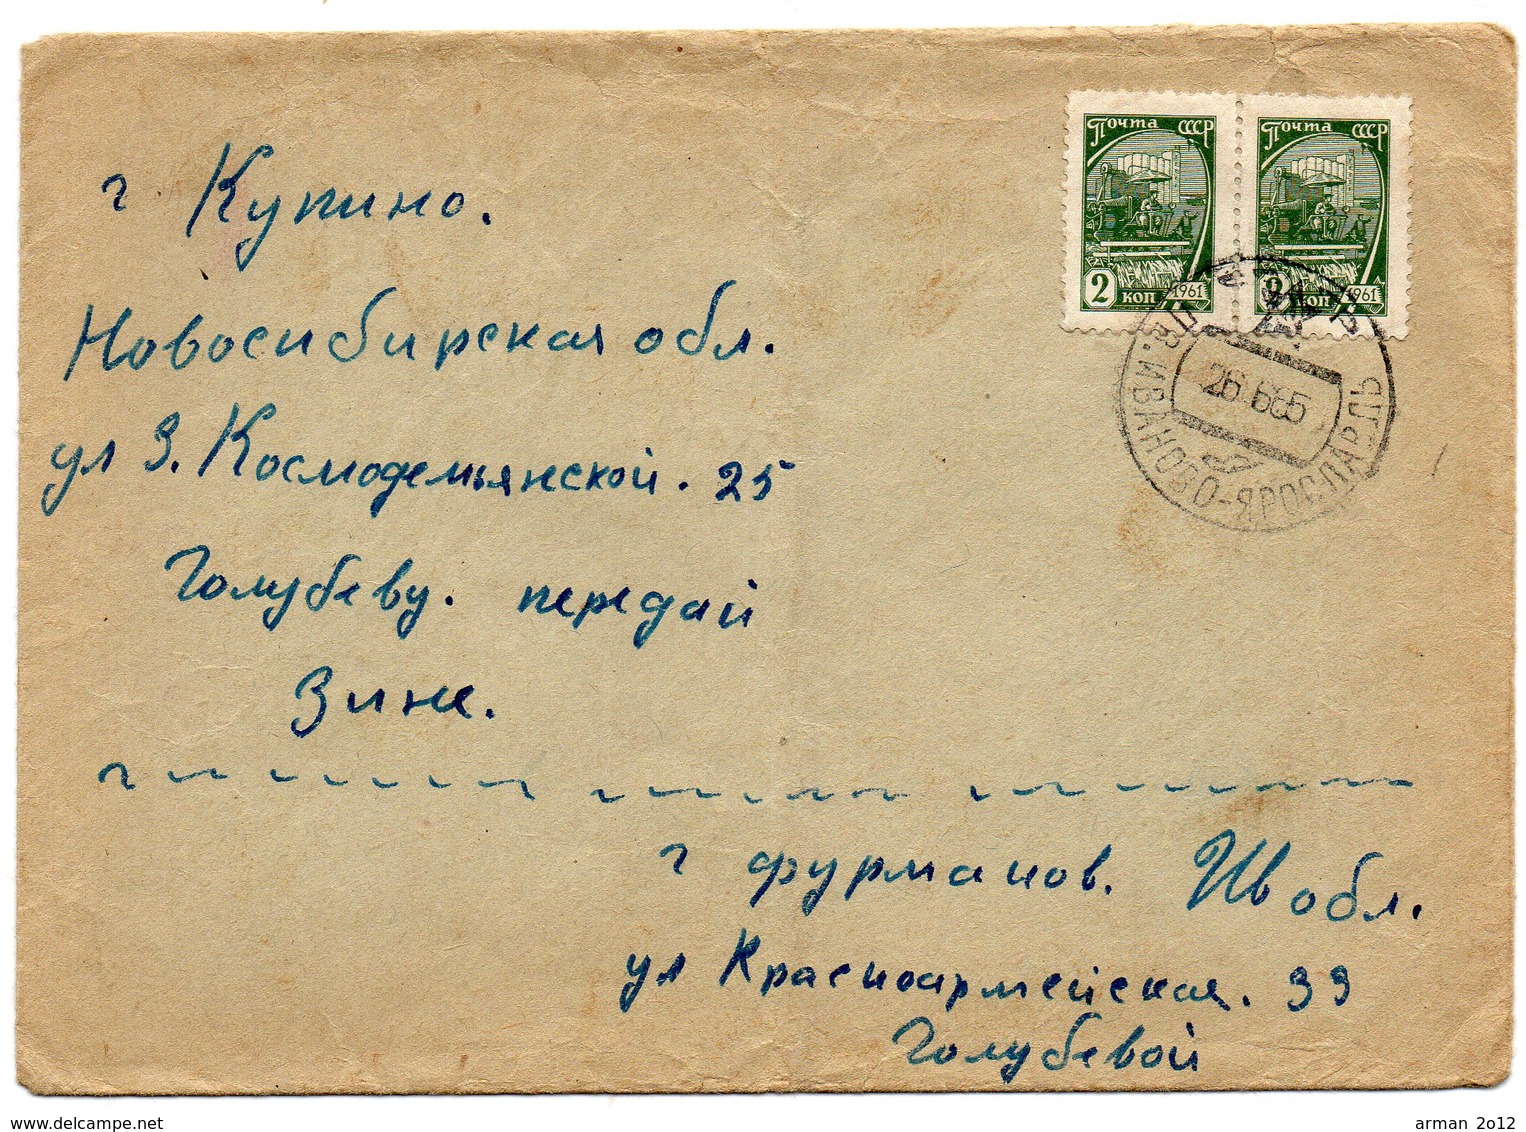 г Купино.
Новосибирская обл.
ул З. Космодемьянской. 25
Голубеву. передай
Зине.
г Фурманов. Ив обл.
ул Красноармейская. 33
Голубевой
Почта СССР
2 коп 1961
Почта СССР
2 коп 1961
ИВАНОВО-ЯРОСЛАВЛЬ
26 6 65
www.delcampe.net
arman 2012